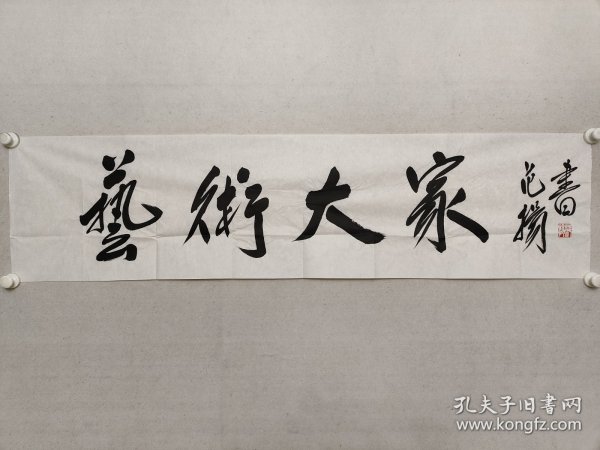 藝術大家
范揚
書
孔夫子旧書网
www.kongfz.com